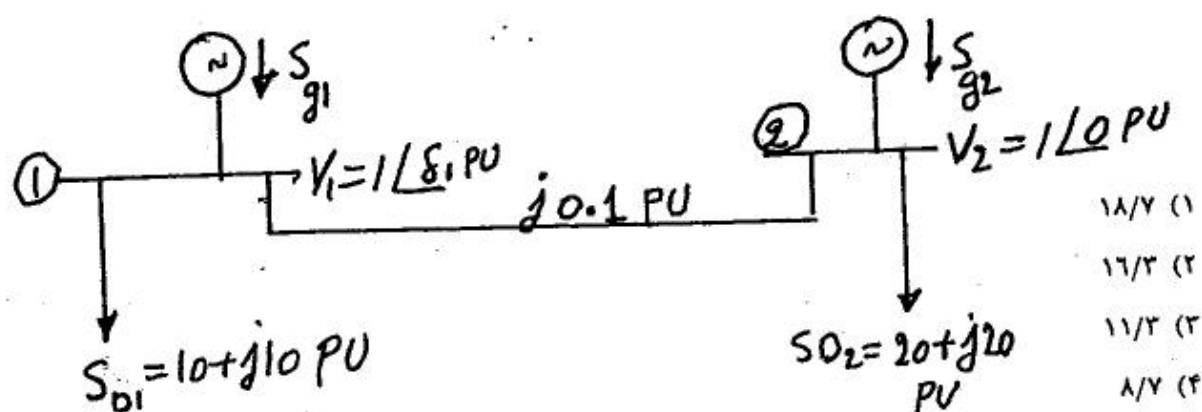 ~ S_g1
~ S_g2
① V₁ = 1∠δ₁ PU
② V₂ = 1∠0 PU
j0.1 PU
S_D1 = 10+j10 PU
SD₂ = 20+j20 PU
۱) ۱۸/۷
۲) ۱۶/۳
۳) ۱۱/۳
۴) ۸/۷